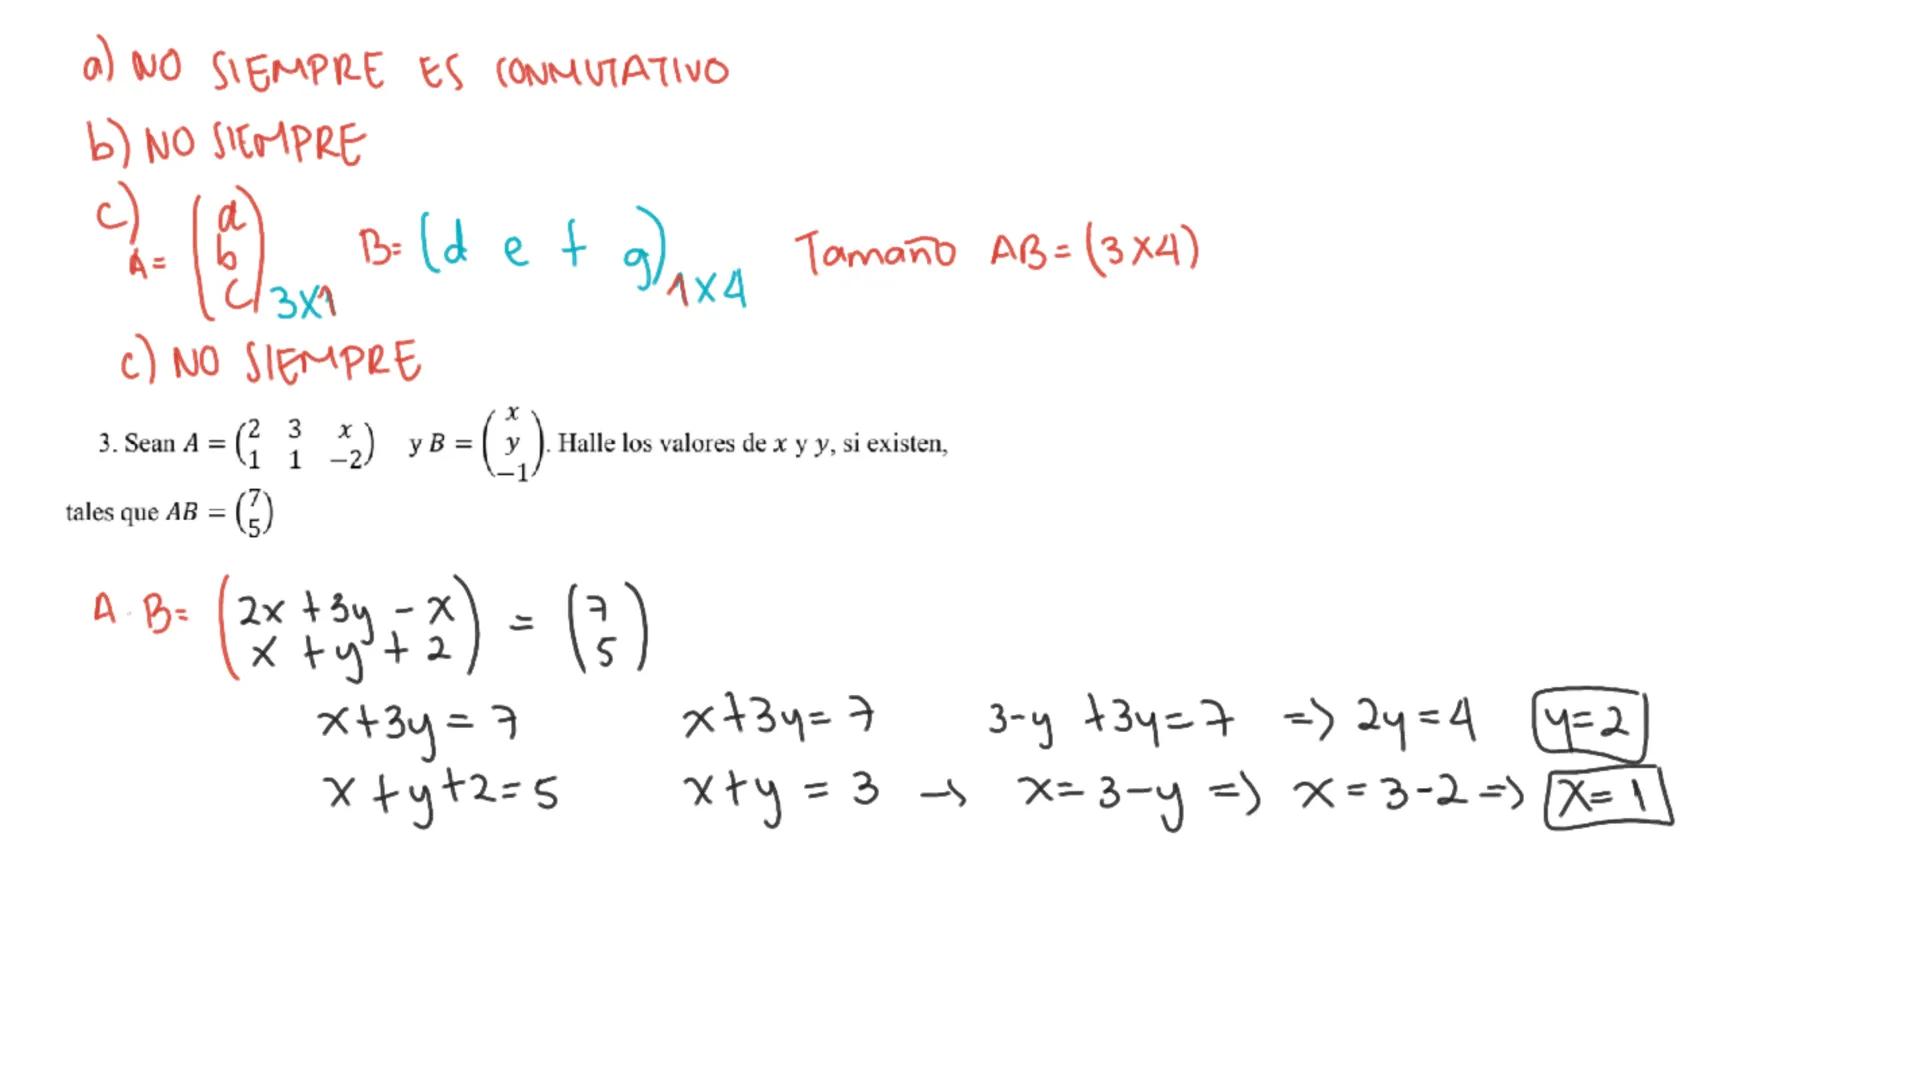 a) NO SIEMPRE ES CONMUTATIVO
b) NO SIEMPRE
c) A = (a b c) 3X1 B = (d e f g) 1X4 Tamaño AB = (3X4)
c) NO SIEMPRE
3. Sean A = (2 3 x
1 1 −2) y B = (x
y
−1). Halle los valores de x y y, si existen,
tales que AB = (7
5)
A · B = (2x + 3y - x
x + y + 2) = (7
5)
x+3y = 7 x+3y = 7 3-y +3y = 7 => 2y = 4 y = 2
x + y + 2 = 5 x + y = 3 → x = 3 - y => x = 3 - 2 => x = 1